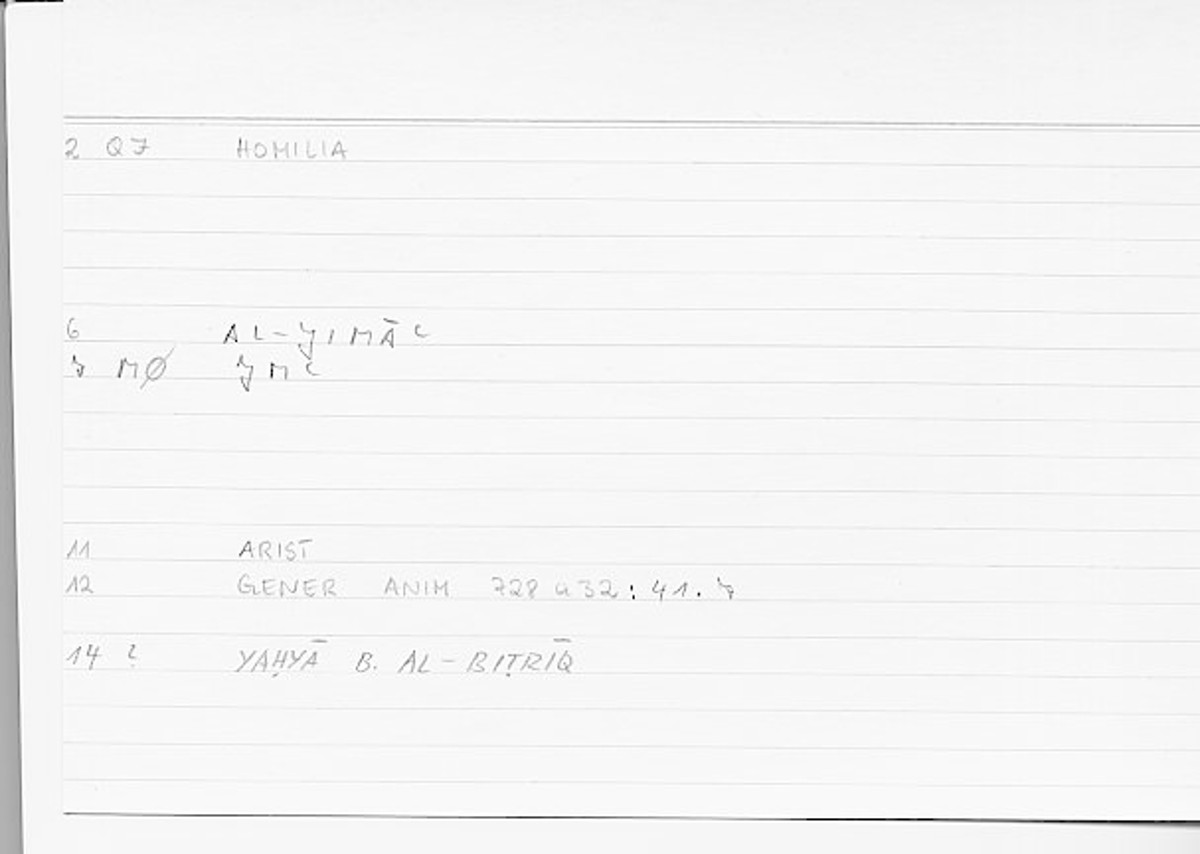 2 Q7 HOMILIA
6 AL-ǦIMĀʿ
7 MØ ǦMʿ
11 ARIST
12 GENER ANIM 728 a 32 : 41.7
14 ? YAḤYĀ B. AL-BIṬRĪQ